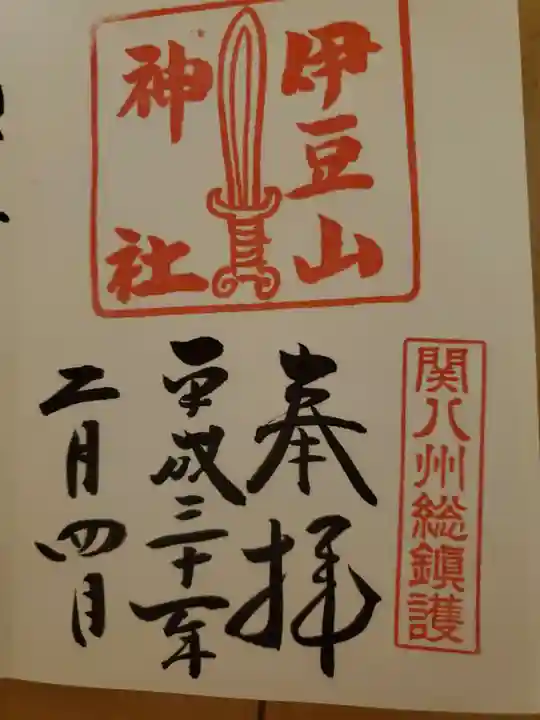 関八州総鎮護
伊豆山
神社
奉拝
平成三十一年
二月四日